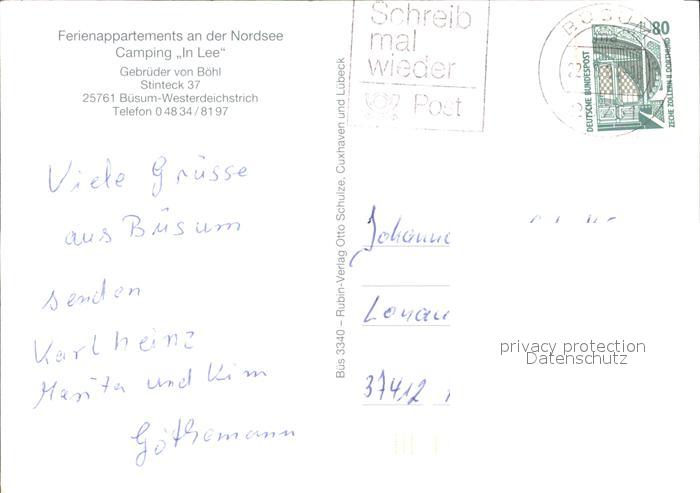 Ferienappartements an der Nordsee
Camping „In Lee“
Gebrüder von Böhl
Stinteck 37
25761 Büsum-Westerdeichstrich
Telefon 0 48 34 / 81 97
Viele Grüsse
aus Büsum
senden
Karlheinz
Marita und Kim
Göthemann
Büs 3340 – Rubin-Verlag Otto Schulze, Cuxhaven und Lübeck
Schreib
mal
wieder
Post
BÜSUM
80
DEUTSCHE BUNDESPOST
ZECHE ZOLLERN II DORTMUND
Johanne
Lonau
37412
privacy protection
Datenschutz